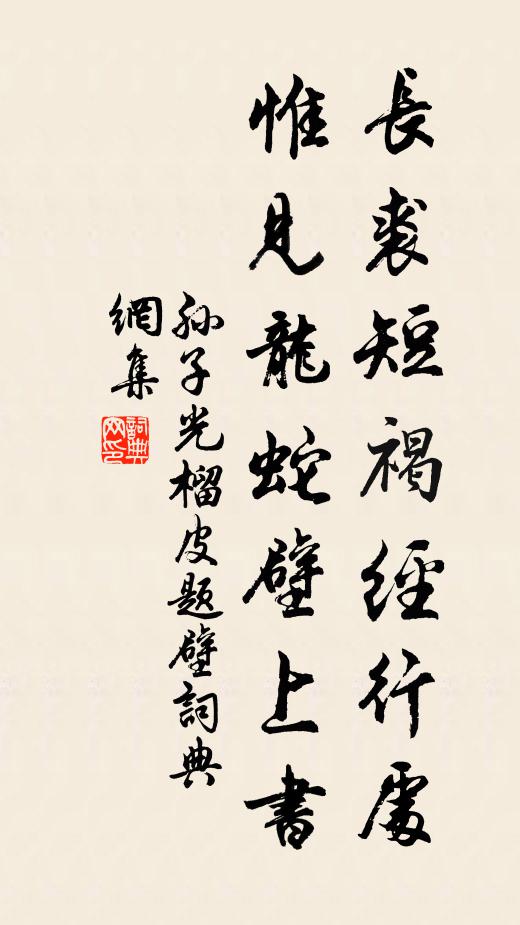 長裘短褐經行處
惟見龍蛇壁上書
孙子光榴皮题壁詞典
網集
詞典
网印